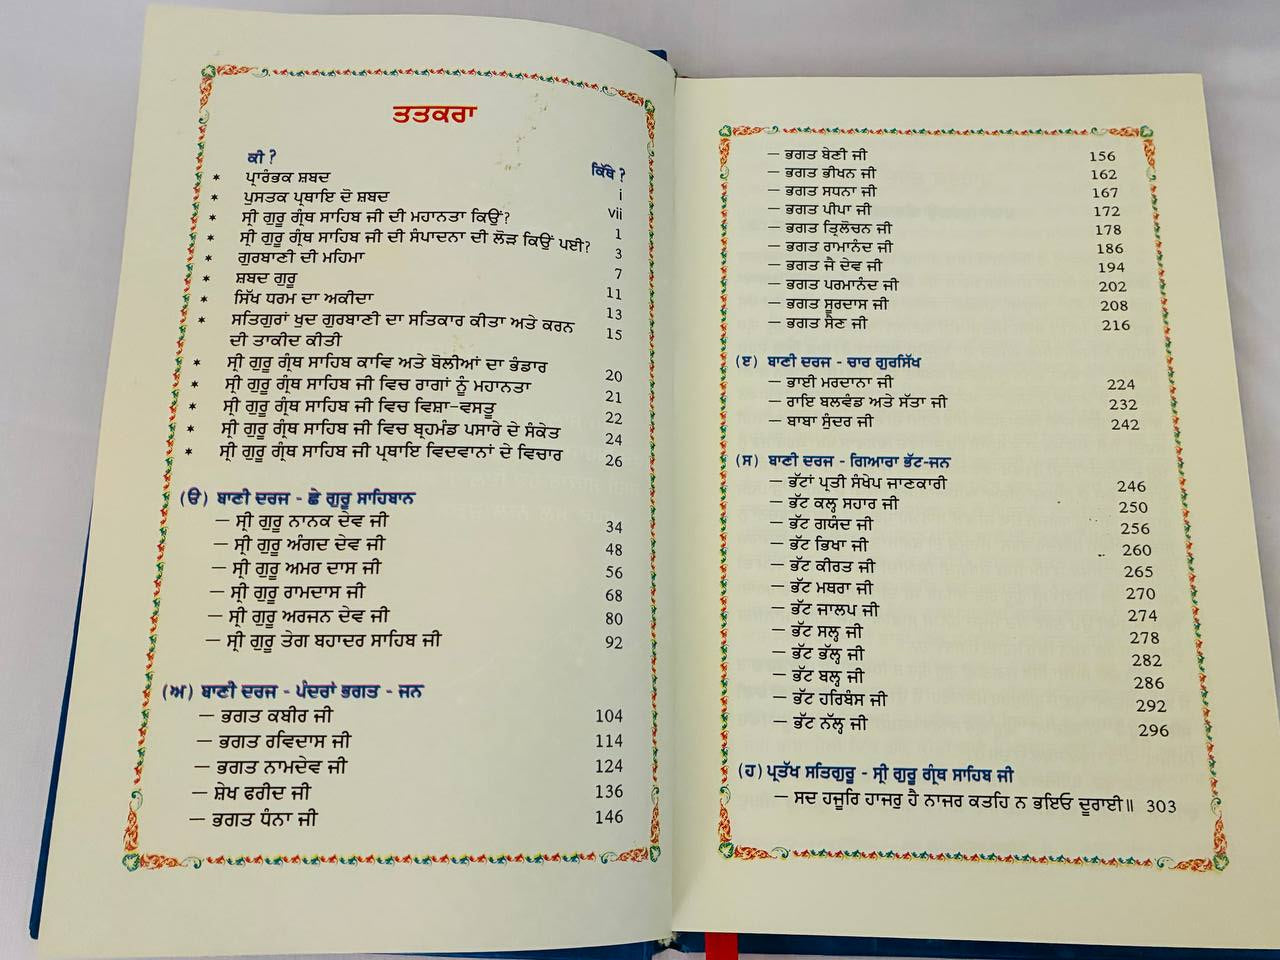 ਤਤਕਰਾ
ਕੀ ? ਕਿੱਥੇ ?
* ਪ੍ਰਾਰੰਭਕ ਸ਼ਬਦ i
* ਪੁਸਤਕ ਪ੍ਰਥਾਇ ਦੋ ਸ਼ਬਦ vii
* ਸ੍ਰੀ ਗੁਰੂ ਗ੍ਰੰਥ ਸਾਹਿਬ ਜੀ ਦੀ ਮਹਾਨਤਾ ਕਿਉਂ? 1
* ਸ੍ਰੀ ਗੁਰੂ ਗ੍ਰੰਥ ਸਾਹਿਬ ਜੀ ਦੀ ਸੰਪਾਦਨਾ ਦੀ ਲੋੜ ਕਿਉਂ ਪਈ? 3
* ਗੁਰਬਾਣੀ ਦੀ ਮਹਿਮਾ 7
* ਸ਼ਬਦ ਗੁਰੂ 11
* ਸਿੱਖ ਧਰਮ ਦਾ ਅਕੀਦਾ 13
* ਸਤਿਗੁਰਾਂ ਖੁਦ ਗੁਰਬਾਣੀ ਦਾ ਸਤਿਕਾਰ ਕੀਤਾ ਅਤੇ ਕਰਨ 15
ਦੀ ਤਾਕੀਦ ਕੀਤੀ
* ਸ੍ਰੀ ਗੁਰੂ ਗ੍ਰੰਥ ਸਾਹਿਬ ਕਾਵਿ ਅਤੇ ਬੋਲੀਆਂ ਦਾ ਭੰਡਾਰ 20
* ਸ੍ਰੀ ਗੁਰੂ ਗ੍ਰੰਥ ਸਾਹਿਬ ਜੀ ਵਿਚ ਰਾਗਾਂ ਨੂੰ ਮਹਾਨਤਾ 21
* ਸ੍ਰੀ ਗੁਰੂ ਗ੍ਰੰਥ ਸਾਹਿਬ ਜੀ ਵਿਚ ਵਿਸ਼ਾ-ਵਸਤੂ 22
* ਸ੍ਰੀ ਗੁਰੂ ਗ੍ਰੰਥ ਸਾਹਿਬ ਜੀ ਵਿਚ ਬ੍ਰਹਮੰਡ ਪਸਾਰੇ ਦੇ ਸੰਕੇਤ 24
* ਸ੍ਰੀ ਗੁਰੂ ਗ੍ਰੰਥ ਸਾਹਿਬ ਜੀ ਪ੍ਰਥਾਇ ਵਿਦਵਾਨਾਂ ਦੇ ਵਿਚਾਰ 26
(ੳ) ਬਾਣੀ ਦਰਜ - ਛੇ ਗੁਰੂ ਸਾਹਿਬਾਨ
– ਸ੍ਰੀ ਗੁਰੂ ਨਾਨਕ ਦੇਵ ਜੀ 34
– ਸ੍ਰੀ ਗੁਰੂ ਅੰਗਦ ਦੇਵ ਜੀ 48
– ਸ੍ਰੀ ਗੁਰੂ ਅਮਰ ਦਾਸ ਜੀ 56
– ਸ੍ਰੀ ਗੁਰੂ ਰਾਮਦਾਸ ਜੀ 68
– ਸ੍ਰੀ ਗੁਰੂ ਅਰਜਨ ਦੇਵ ਜੀ 80
– ਸ੍ਰੀ ਗੁਰੂ ਤੇਗ ਬਹਾਦਰ ਸਾਹਿਬ ਜੀ 92
(ਅ) ਬਾਣੀ ਦਰਜ - ਪੰਦਰਾਂ ਭਗਤ - ਜਨ
– ਭਗਤ ਕਬੀਰ ਜੀ 104
– ਭਗਤ ਰਵਿਦਾਸ ਜੀ 114
– ਭਗਤ ਨਾਮਦੇਵ ਜੀ 124
– ਸ਼ੇਖ ਫਰੀਦ ਜੀ 136
– ਭਗਤ ਧੰਨਾ ਜੀ 146
– ਭਗਤ ਬੇਣੀ ਜੀ 156
– ਭਗਤ ਭੀਖਨ ਜੀ 162
– ਭਗਤ ਸਧਨਾ ਜੀ 167
– ਭਗਤ ਪੀਪਾ ਜੀ 172
– ਭਗਤ ਤ੍ਰਿਲੋਚਨ ਜੀ 178
– ਭਗਤ ਰਾਮਾਨੰਦ ਜੀ 186
– ਭਗਤ ਜੈ ਦੇਵ ਜੀ 194
– ਭਗਤ ਪਰਮਾਨੰਦ ਜੀ 202
– ਭਗਤ ਸੂਰਦਾਸ ਜੀ 208
– ਭਗਤ ਸੈਣ ਜੀ 216
(ੲ) ਬਾਣੀ ਦਰਜ - ਚਾਰ ਗੁਰਸਿੱਖ
– ਭਾਈ ਮਰਦਾਨਾ ਜੀ 224
– ਰਾਇ ਬਲਵੰਡ ਅਤੇ ਸੱਤਾ ਜੀ 232
– ਬਾਬਾ ਸੁੰਦਰ ਜੀ 242
(ਸ) ਬਾਣੀ ਦਰਜ - ਗਿਆਰਾ ਭੱਟ-ਜਨ
– ਭੱਟਾਂ ਪ੍ਰਤੀ ਸੰਖੇਪ ਜਾਣਕਾਰੀ 246
– ਭੱਟ ਕਲ੍ਹ ਸਹਾਰ ਜੀ 250
– ਭੱਟ ਗਯੰਦ ਜੀ 256
– ਭੱਟ ਭਿਖਾ ਜੀ 260
– ਭੱਟ ਕੀਰਤ ਜੀ 265
– ਭੱਟ ਮਥਰਾ ਜੀ 270
– ਭੱਟ ਜਾਲਪ ਜੀ 274
– ਭੱਟ ਸਲ੍ਹ ਜੀ 278
– ਭੱਟ ਭੱਲ੍ਹ ਜੀ 282
– ਭੱਟ ਬਲ੍ਹ ਜੀ 286
– ਭੱਟ ਹਰਿਬੰਸ ਜੀ 292
– ਭੱਟ ਨੱਲ੍ਹ ਜੀ 296
(ਹ) ਪ੍ਰਤੱਖ ਸਤਿਗੁਰੂ - ਸ੍ਰੀ ਗੁਰੂ ਗ੍ਰੰਥ ਸਾਹਿਬ ਜੀ
– ਸਦ ਹਜੂਰਿ ਹਾਜਰੁ ਹੈ ਨਾਜਰ ਕਤਹਿ ਨ ਭਇਓ ਦੂਰਾਈ॥ 303